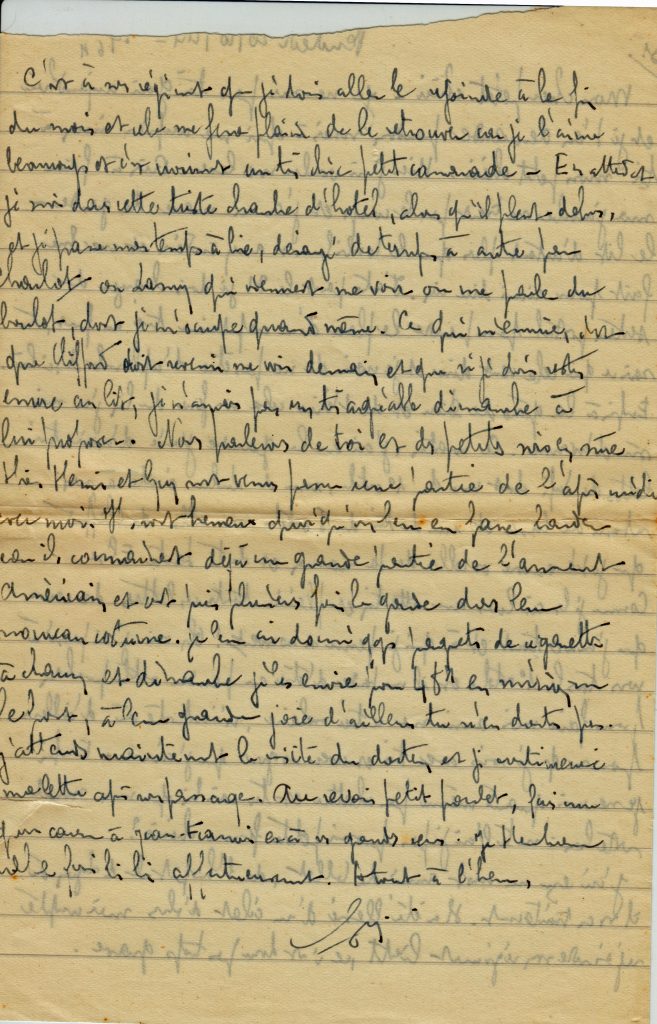 C'est à ses régiment que je dois aller le rejoindre à la fin
du mois et cela me fera plaisir de le retrouver car je l'aime
beaucoup et c'est vraiment un très chic petit camarade – En attendant
je suis dans cette triste chambre d'hôtel, alors qu'il pleut dehors,
et je passe mes temps à lire, dérangé de temps à autre par
Charlot ou Lamy qui viennent me voir ou me parler du
boulot, dont je m'occupe quand même. Ce qui m'ennuie, c'est
que Clifford doit revenir me voir demain et que si je dois rester
encore au lit, je n'aurais pas un très agréable dimanche à
lui proposer. Nous parlerons de toi et des petits
et Guy sont venus passer une partie de l'après midi
avec moi. Ils sont heureux quoiqu'on leur en fasse
car ils connaissent déjà une grande partie de l'armement
Américain, et ont pris plusieurs fois la garde dans leur
nouveau costume. je leur ai donné qqs paquets de cigarettes
à chacun et dimanche je les envoie pour 48h en mission
à leur grande joie d'ailleurs tu n'en doutes pas.
J'attends maintenant la visite du docteur, et je continuerai
ma lettre après son passage. Au revoir petit poulet, fais un
à Jean-François et à
affectueusement. A tout à l'heure,
Guy